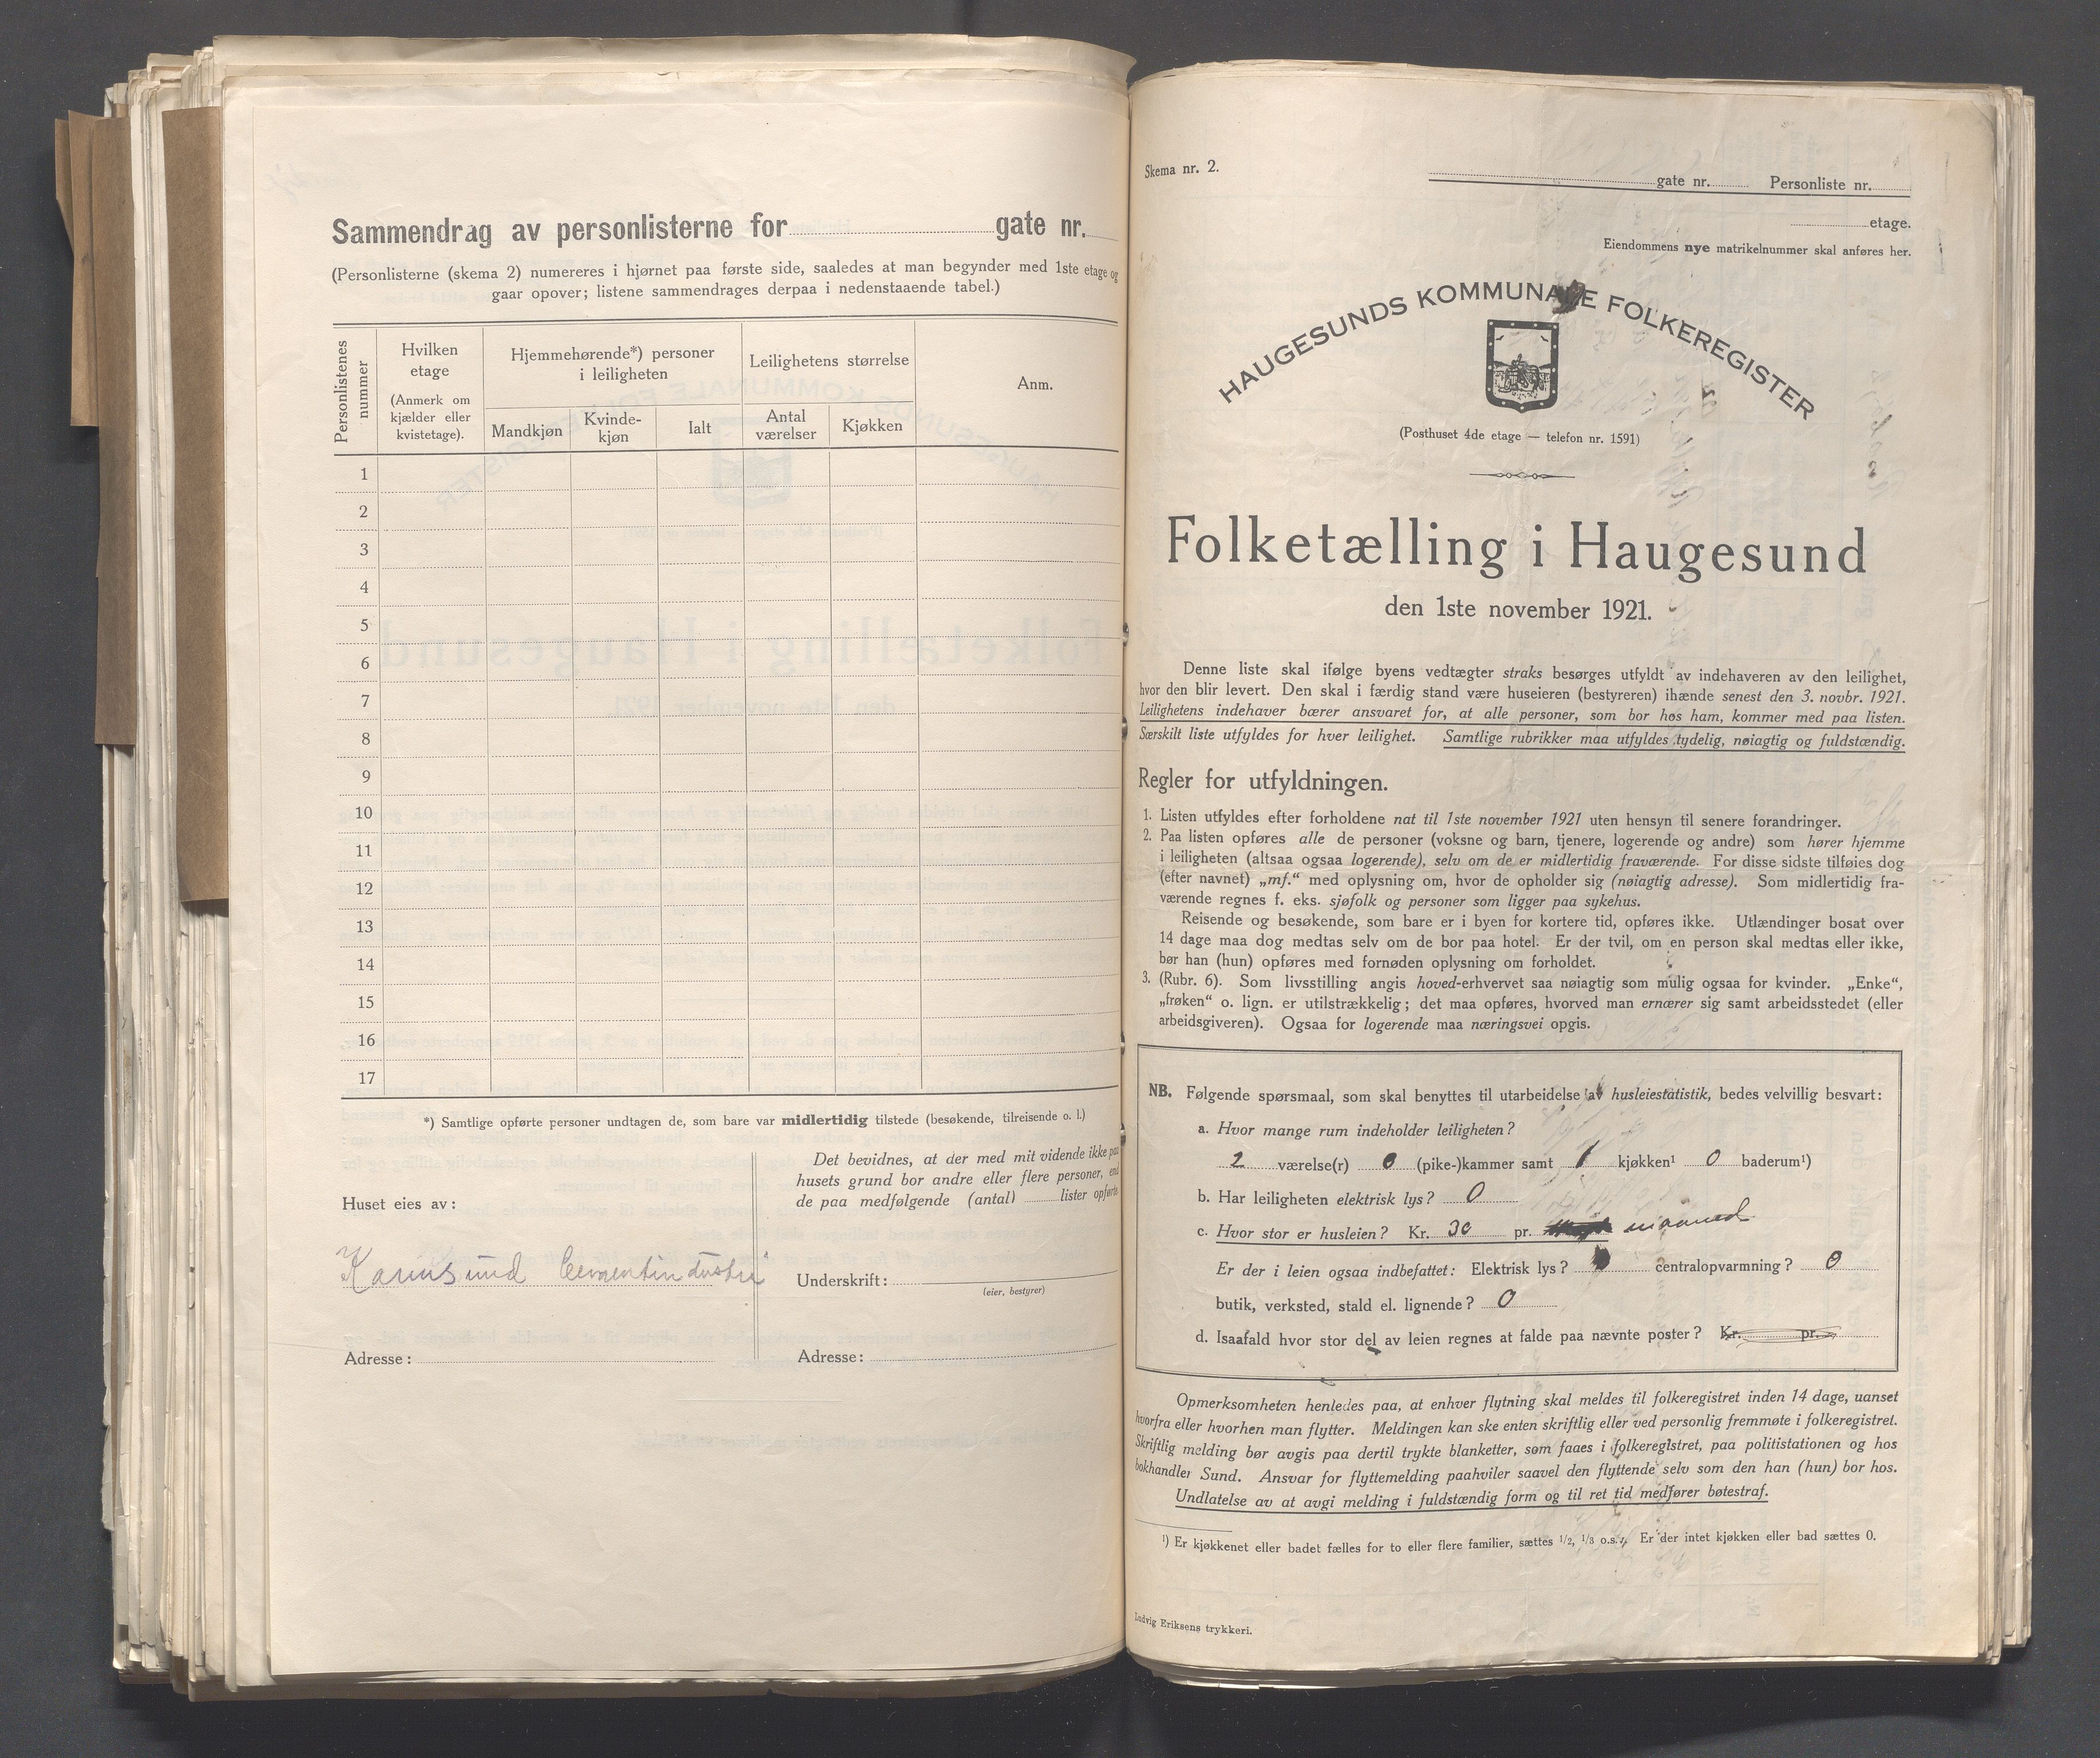 Sammendrag av personlisterne for gate nr.
(Personlisterne (skema 2) numereres i hjørnet paa første side, saaledes at man begynder med 1ste etage og
gaar opover; listene sammendrages derpaa i nedenstaaende tabel.)
Personlistenes nummer
Hvilken etage
(Anmerk om kjælder eller kvistetage).
Hjemmehørende*) personer i leiligheten
Mandkjøn
Kvinde-
kjøn
Ialt
Leilighetens størrelse
Antal værelser
Kjøkken
Anm.
1
2
3
4
5
6
7
8
9
10
11
12
13
14
15
16
17
*) Samtlige opførte personer undtagen de, som bare var midlertidig tilstede (besøkende, tilreisende o. l.)
Huset eies av:
Karmsund Cementindustri
Adresse:
Det bevidnes, at der med mit vidende ikke paa
husets grund bor andre eller flere personer, end
de paa medfølgende (antal) lister opførte
Underskrift:
(eier, bestyrer)
Adresse:
Skema nr. 2.
gate nr. Personliste nr.
etage.
Eiendommens nye matrikelnummer skal anføres her.
HAUGESUNDS KOMMUNALE FOLKEREGISTER
(Posthuset 4de etage — telefon nr. 1591)
Folketælling i Haugesund
den 1ste november 1921.
Denne liste skal ifølge byens vedtægter straks besørges utfyldt av indehaveren av den leilighet,
hvor den blir levert. Den skal i færdig stand være huseieren (bestyreren) ihænde senest den 3. novbr. 1921.
Leilighetens indehaver bærer ansvaret for, at alle personer, som bor hos ham, kommer med paa listen.
Særskilt liste utfyldes for hver leilighet. Samtlige rubrikker maa utfyldes tydelig, nøiagtig og fuldstændig.
Regler for utfyldningen.
1. Listen utfyldes efter forholdene nat til 1ste november 1921 uten hensyn til senere forandringer.
2. Paa listen opføres alle de personer (voksne og barn, tjenere, logerende og andre) som hører hjemme
i leiligheten (altsaa ogsaa logerende), selv om de er midlertidig fraværende. For disse sidste tilføies dog
(efter navnet) „mf.“ med oplysning om, hvor de opholder sig (nøiagtig adresse). Som midlertidig fra-
værende regnes f. eks. sjøfolk og personer som ligger paa sykehus.
Reisende og besøkende, som bare er i byen for kortere tid, opføres ikke. Utlændinger bosat over
14 dage maa dog medtas selv om de bor paa hotel. Er der tvil, om en person skal medtas eller ikke,
bør han (hun) opføres med fornøden oplysning om forholdet.
3. (Rubr. 6). Som livsstilling angis hoved-erhvervet saa nøiagtig som mulig ogsaa for kvinder. „Enke“,
„frøken“ o. lign. er utilstrækkelig; det maa opføres, hvorved man ernærer sig samt arbeidsstedet (eller
arbeidsgiveren). Ogsaa for logerende maa næringsvei opgis.
NB. Følgende spørsmaal, som skal benyttes til utarbeidelse av husleiestatistik, bedes velvillig besvart:
a. Hvor mange rum indeholder leiligheten?
2 værelse(r) 0 (pike-)kammer samt 1 kjøkken¹ 0 baderum¹)
b. Har leiligheten elektrisk lys? 0
c. Hvor stor er husleien? Kr. 30 pr. maaned
Er der i leien ogsaa indbefattet: Elektrisk lys? centralopvarmning? 0
butik, verksted, stald el. lignende? 0
d. Isaafald hvor stor del av leien regnes at falde paa nævnte poster? Kr. pr.
Opmerksomheten henledes paa, at enhver flytning skal meldes til folkeregistret inden 14 dage, uanset
hvorfra eller hvorhen man flytter. Meldingen kan ske enten skriftlig eller ved personlig fremmøte i folkeregistret.
Skriftlig melding bør avgis paa dertil trykte blanketter, som faaes i folkeregistret, paa politistationen og hos
bokhandler Sund. Ansvar for flyttemelding paahviler saavel den flyttende selv som den han (hun) bor hos.
Undlatelse av at avgi melding i fuldstændig form og til ret tid medfører bøtestraf.
¹) Er kjøkkenet eller badet fælles for to eller flere familier, sættes 1/2, 1/3 o.s.v. Er der intet kjøkken eller bad sættes 0.
Ludvig Eriksens trykkeri.